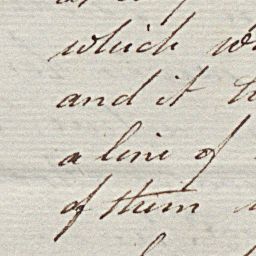 which
and it
a line of
of them